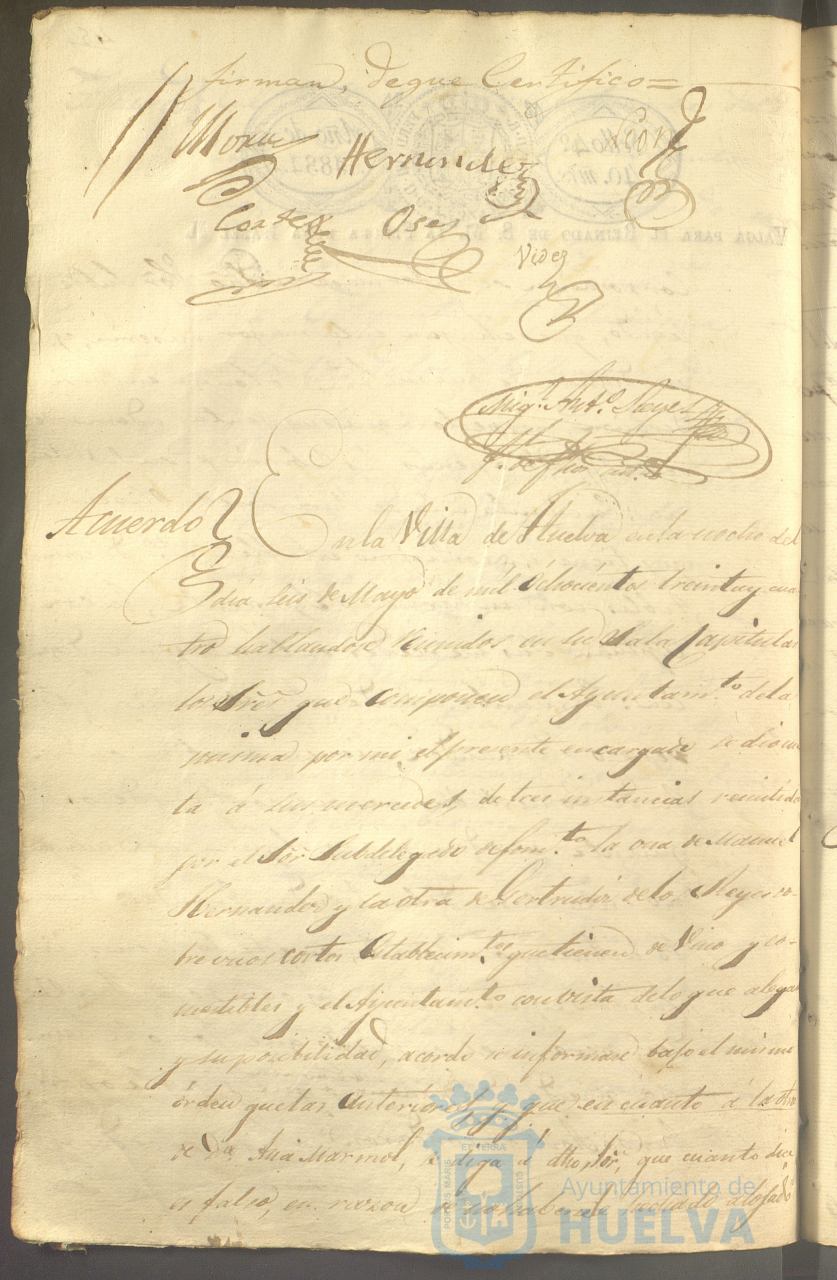 firman, de que Certifico=
Mora Hernandez
Cortes Oses
Videz
Mig.l Ant.o Reyes
Acuerdo
En la Villa de Huelva en la noche del
dia seis de Mayo de mil ochocientos treinta y cua
tro hallandose reunidos en su Sala Capitular
los Sres que componen el Ayuntam.to de la
misma por mi el presente encargado se dio cuen
ta á sus mercedes, de tres instancias remitidas
por el Sor Subdelegado de fom.to la una de Manuel
Hernandez y la otra de Gertrudis de los Reyes so-
bre unos cortos Establecim.tos que tienen de Vino y co-
mestibles y el Ayuntam.to con vista de lo que alegan
y su posibilidad, acordo se informase bajo el mismo
órden que las anteriores, y que en cuanto á la otra
de Da Ana Marmol, se diga á dho Sor, que cuanto dice
es falso, en razon de no haberse alojado
Ayuntamiento de
HUELVA
PORTUS MARIS
ET TERRAE
CUSTODIA